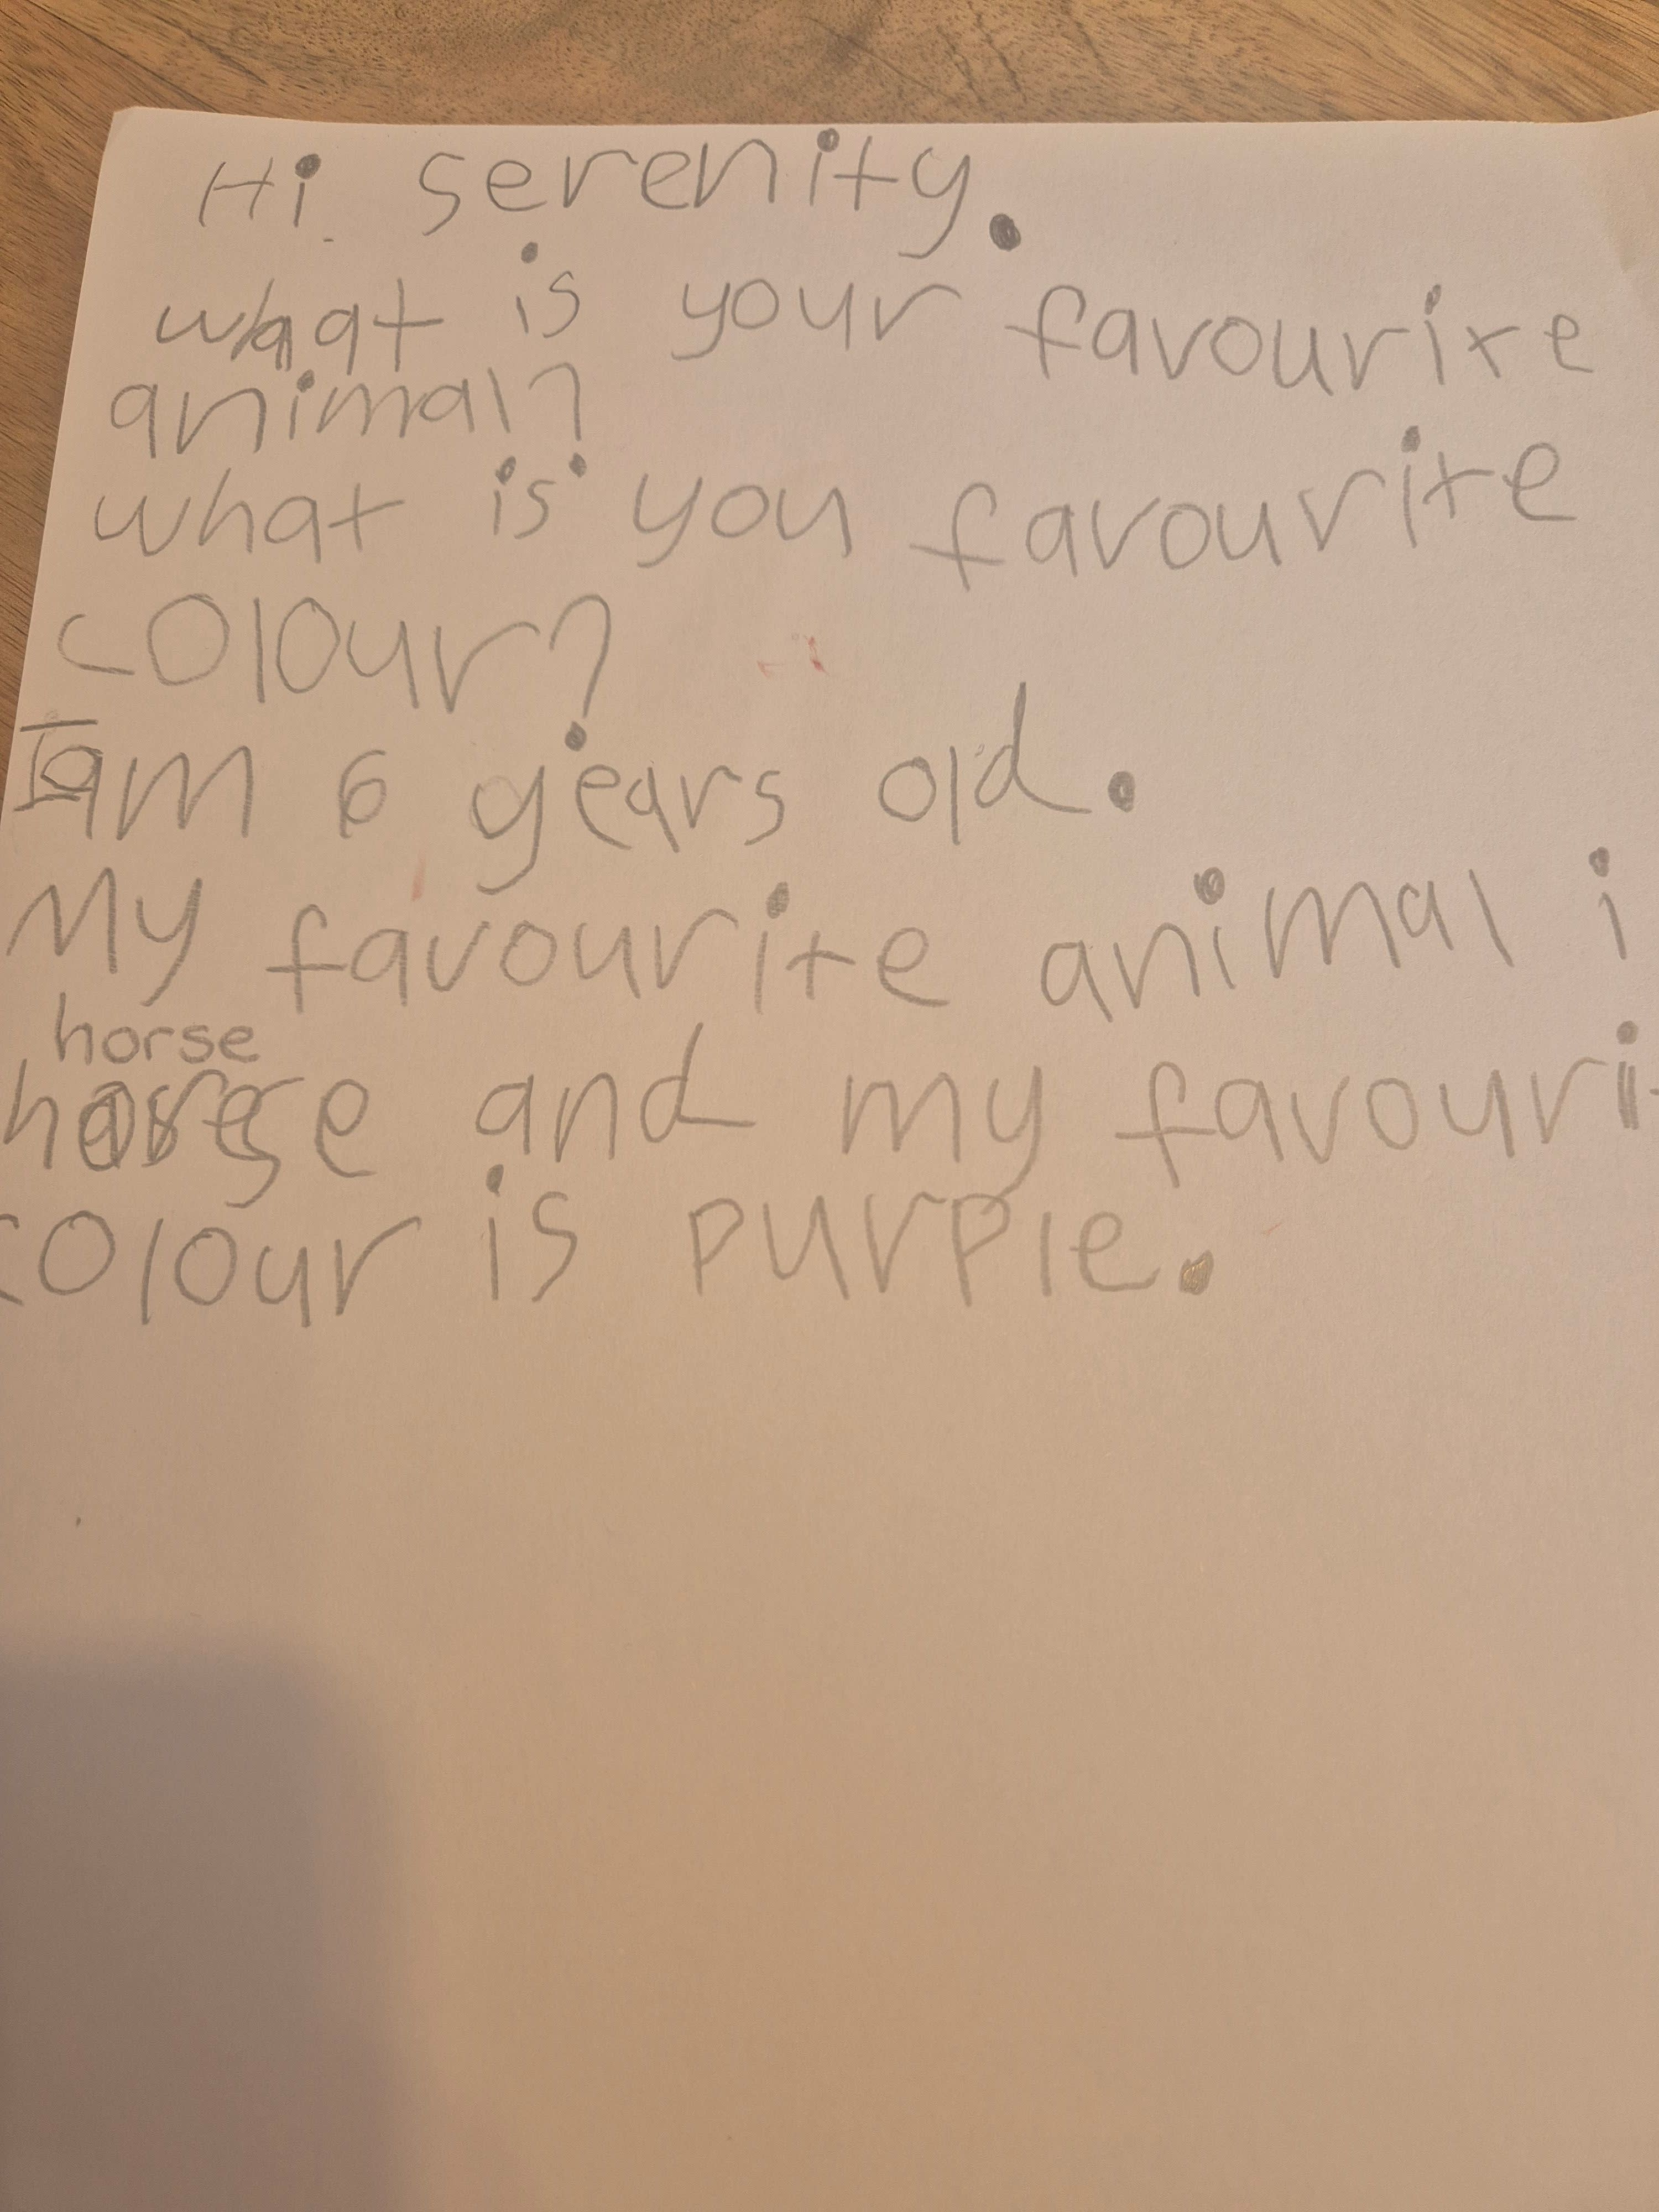 Hi serenity.
what is your favourite
animal?
what is you favourite
colour?
I am 6 years old.
My favourite animal i
horse
horse and my favouri
colour is purple.